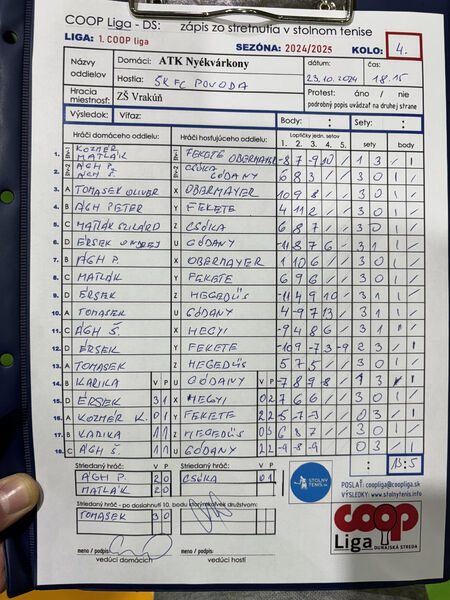 COOP Liga - DS: zápis zo stretnutia v stolnom tenise
LIGA: 1. COOP liga SEZÓNA: 2024/2025 KOLO: 4.
Názvy oddielov Domáci: ATK Nyékvárkony dátum: čas:
Hostia: ŠK FC POVODA 23.10.2024 18.15
Hracia miestnosť: ZŠ Vrakúň Protest: áno / nie
podrobný popis uvádzať na druhej strane
Výsledok: Víťaz: Body: : Sety: :
Hráči domáceho oddielu: Hráči hosťujúceho oddielu: Loptičky jedn. setov sety body
1. 2. 3. 4. 5.
1. KOZMÉR MATLÁK FEKETE OBERMAYER -8 7 -9 10 / 1 3 / 1
2. ÁGH P. ÁGH Š. CSÓKA GÓDANY 6 8 3 / / 3 0 1 /
3. A TOMASEK OLIVER X OBERMAYER 10 9 8 / / 3 0 1 /
4. B ÁGH PETER Y FEKETE 4 11 2 / / 3 0 1 /
5. C MATLÁK SZILÁRD Z CSÓKA 6 8 7 / / 3 0 1 /
6. D ÉRSEK ONDREJ U GÓDANY -11 8 7 6 / 3 1 1 /
7. B ÁGH P. X OBERMAYER 1 10 6 / / 3 0 1 /
8. C MATLÁK Y FEKETE 6 9 6 / / 3 0 1 /
9. D ÉRSEK Z HEGEDŰS -11 4 9 10 / 3 1 1 /
10. A TOMASEK U GÓDANY 4 -9 7 13 / 3 1 1 /
11. C ÁGH Š X HEGYI -9 4 8 6 / 3 1 1 /
12. D ÉRSEK Y FEKETE -10 9 -7 3 -9 2 3 / 1
13. A TOMASEK Z HEGEDŰS 5 7 5 / / 3 0 1 /
14. B KADIKA V P U GÓDANY V P -7 8 9 8 / 3 1 /
15. D ÉRSEK 3 1 X HEGYI 0 2 7 6 6 / / 3 0 1 /
16. A KOZMÉR K. 0 1 Y FEKETE 2 2 / / 0 3 / 1
17. B KADIKA 1 1 Z HEGEDŰS 6 8 7 / / 3 0 1 /
18. C ÁGH Š. 1 1 U GÓDANY -9 -8 -9 / / 0 3 / 1
Striedaný hráč: V P Striedaný hráč: V P 13:5
ÁGH P 2 0 CSÓKA 0 1
MATLÁK 2 0
STOLNÝ TENIS
POSLAŤ: coopliga@coopliga.sk
VÝSLEDKY: www.stolnytenis.info
Striedaný hráč - po dosiahnutí 10. bodu ktorýmkoľvek družstvom:
TOMASEK 3 0
COOP
Liga DUNAJSKÁ STREDA
meno / podpis meno / podpis
vedúci domácich vedúci hostí